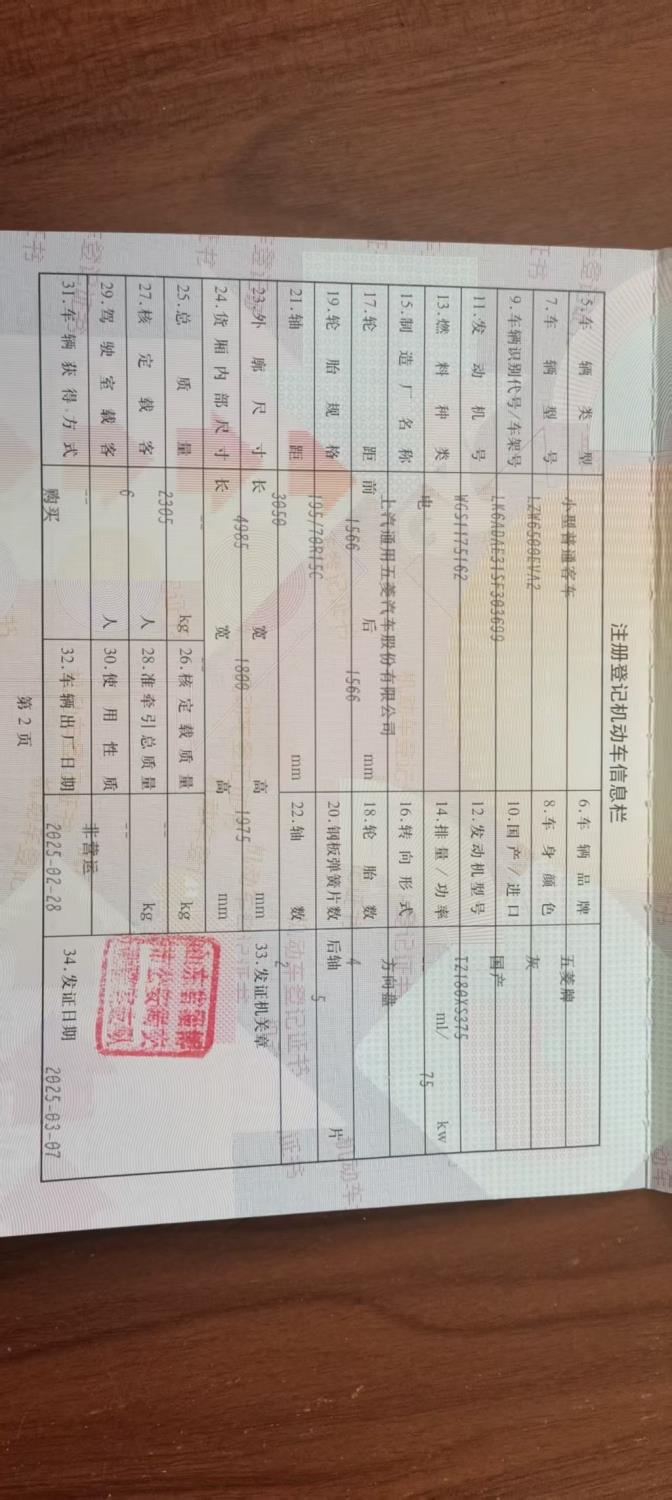 注册登记机动车信息栏
5.车辆类型 小型普通客车 6.车辆品牌 五菱牌
7.车辆型号 LZW6500EVA2 8.车身颜色 灰
9.车辆识别代号/车架号 LK6ADAE31SF303699 10.国产/进口 国产
11.发动机号 WGS1175162 12.发动机型号 TZ180XS375
13.燃料种类 电 14.排量/功率 -- ml/ 75 kw
15.制造厂名称 上汽通用五菱汽车股份有限公司 16.转向形式 方向盘
17.轮距 前 1566 后 1566 mm 18.轮胎数 4
19.轮胎规格 195/70R15C 20.钢板弹簧片数 后轴 5 片
21.轴距 3050 mm 22.轴数 2
23.外廓尺寸 长 4985 宽 1800 高 1975 mm 33.发证机关章
24.货厢内部尺寸 长 -- 宽 -- 高 -- mm
25.总质量 2305 kg 26.核定载质量 -- kg
27.核定载客 6 人 28.准牵引总质量 -- kg
29.驾驶室载客 -- 人 30.使用性质 非营运
31.车辆获得方式 购买 32.车辆出厂日期 2025-02-28 34.发证日期 2025-03-07
第2页